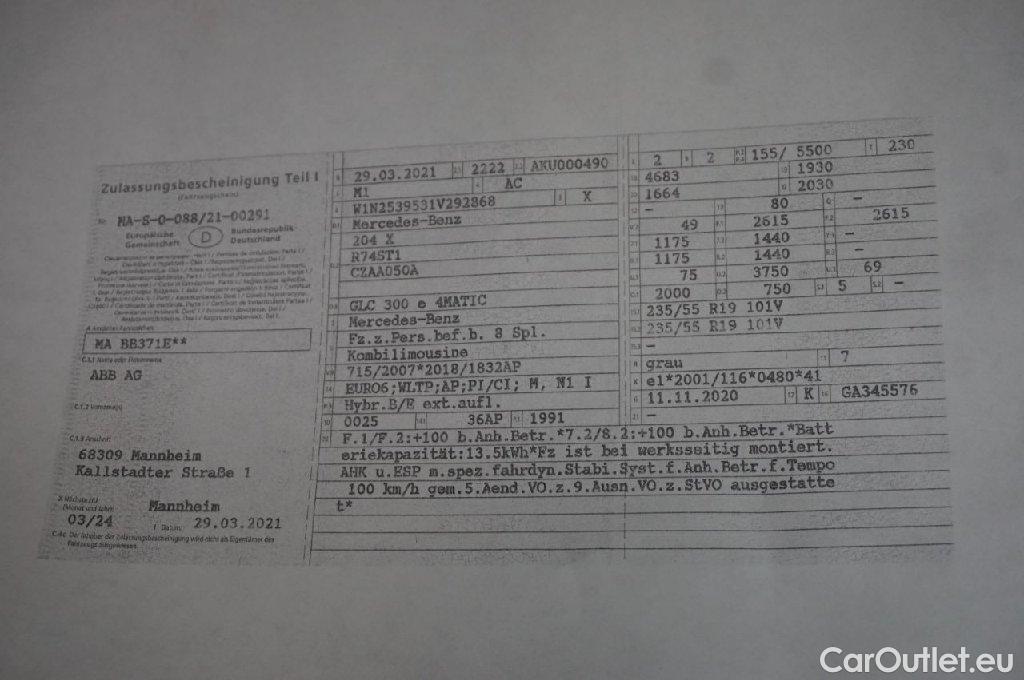 Zulassungsbescheinigung Teil I
(Fahrzeugschein)
Nr. MA-S-0-088/21-00291
Europäische Gemeinschaft
D
Bundesrepublik Deutschland
A Amtliches Kennzeichen
MA BB371E**
C.1.1 Name oder Firmenname
ABB AG
C.1.2 Vorname(n)
C.1.3 Anschrift
68309 Mannheim
Kallstadter Straße 1
Mannheim
03/24
I Datum: 29.03.2021
C.4c Der Inhaber der Zulassungsbescheinigung wird nicht als Eigentümer des Fahrzeugs ausgewiesen.
29.03.2021 2222 AKU000490
M1 AC
W1N2539531V292868 X
Mercedes-Benz
204 X
R74ST1
CZAA050A
GLC 300 e 4MATIC
Mercedes-Benz
Fz.z.Pers.bef.b. 8 Spl.
Kombilimousine
715/2007*2018/1832AP
EURO6;WLTP;AP;PI/CI; M, N1 I
Hybr.B/E ext.aufl.
0025 36AP 1991
2 2 155/ 5500 230
4683 1930
1664 2030
– 80 –
49 2615 2615
1175 1440 –
1175 1440 –
75 3750 69
2000 750 5 –
235/55 R19 101V
235/55 R19 101V
–
grau 7
e1*2001/116*0480*41
11.11.2020 K GA345576
–
F.1/F.2:+100 b.Anh.Betr.*7.2/8.2:+100 b.Anh.Betr.*Batt
eriekapazität:13.5kWh*Fz ist bei werksseitig montiert.
AHK u.ESP m.spez.fahrdyn.Stabi.Syst.f.Anh.Betr.f.Tempo
100 km/h gem.5.Aend.VO.z.9.Ausn.VO.z.StVO ausgestatte
t*
CarOutlet.eu